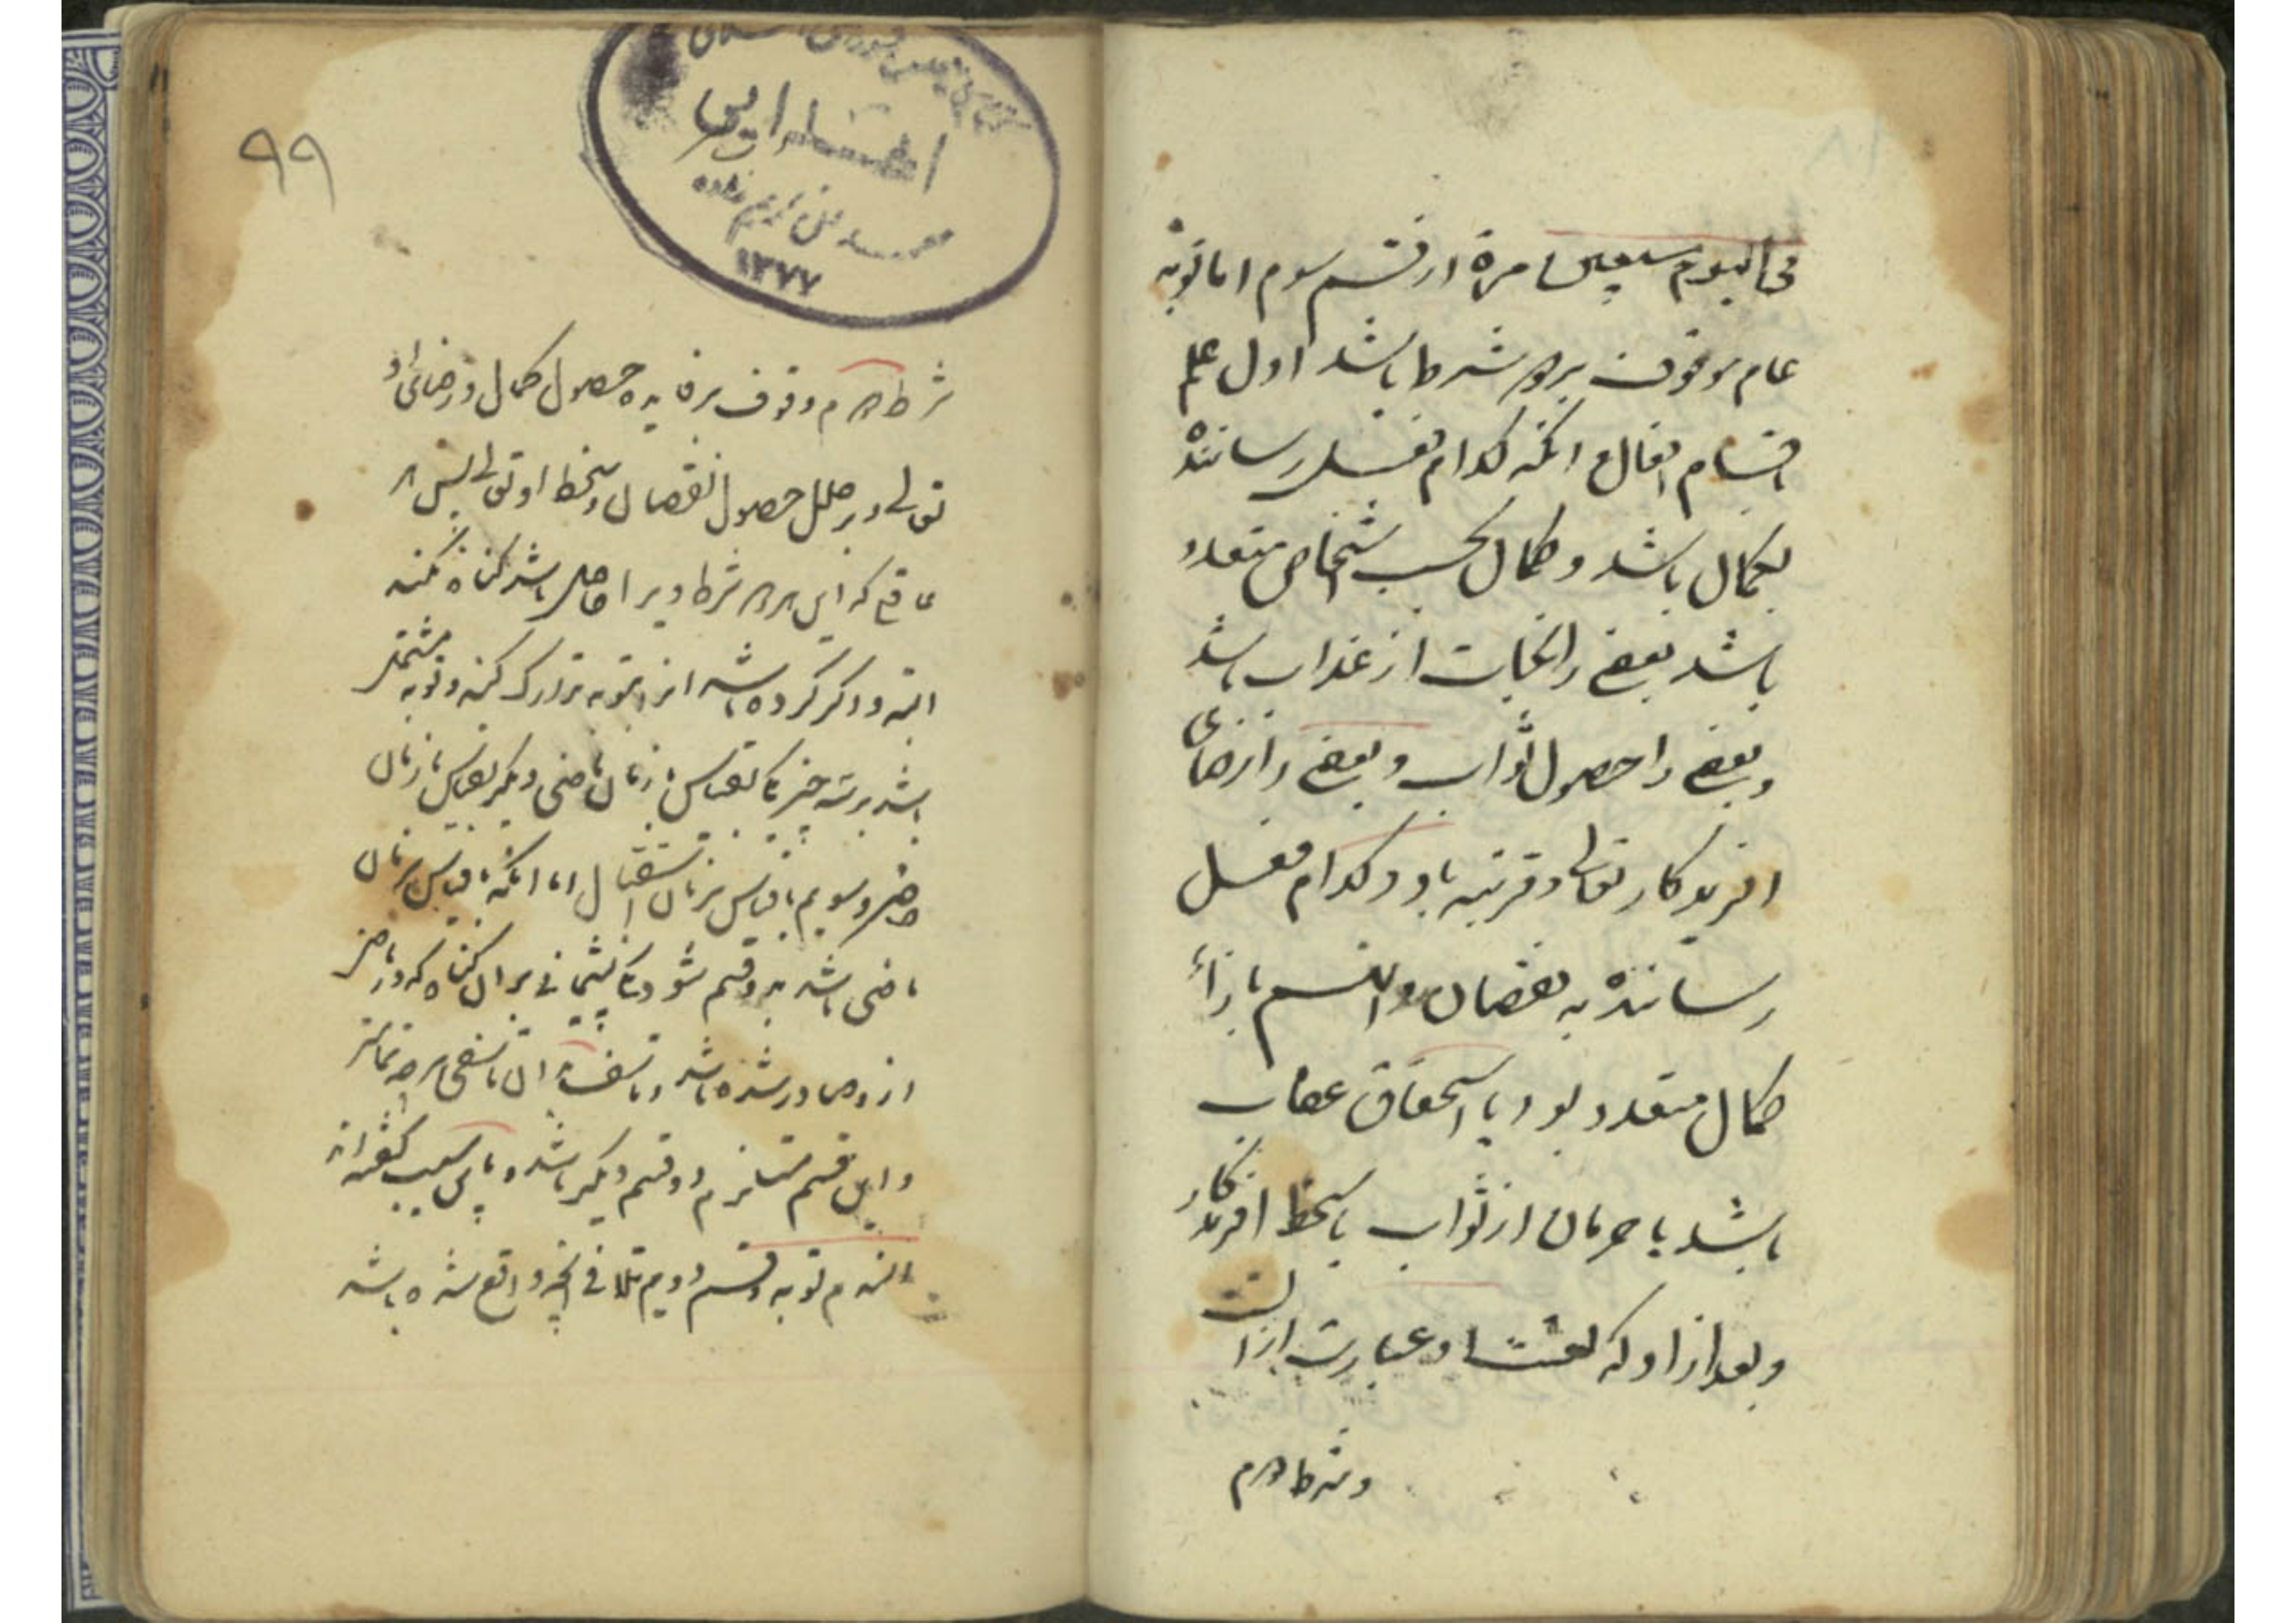 فی الیوم سبعین مرة از قسم سوم اما توبه
عام موقوف بر دو شرط باشد اول علم
باقسام افعال انکه کدام فعل رسانندهٔ
بکمال باشد و کمال بحسب اشخاص متعدد
باشد بعضی را نجات از عذاب باشد
و بعضی را حصول ثواب و بعضی را رضای
افریدکار تعالی و قربت باو و کدام فعل
رسانندهٔ به نقصان و ان هم بازاء
کمال متعدد بود یا استحقاق عقاب
باشد یا حرمان از ثواب یا سخط افریدکار
و بعد از او که لعنت عبارت از ان است
و شرط دوم
۹۹
اهدایی
۱۳۷۷
شرط دوم وقوف بر فایده حصول کمال و رضای او
تعالی و بر خلل حصول نقصان و سخط او تعالی پس هر
عاقل که این دو شرط ویرا حاصل باشد کناه نکند
البته و اکر کرده باشد انرا بتوبه تدارک کند و توبه مشتمل
باشد بر سه چیز یکی بقیاس با زمان ماضی و دیکر بقیاس با زمان
حاضر و سویم بقیاس با زمان استقبال اما انکه بقیاس با زمان
ماضی باشد بدو قسم شود یکی پشیمانی بر ان کناه که در ماضی
ازو صادر شده باشد و تاسف بر ان تاسفی هر چه تمامتر
و این قسم مستلزم دو قسم دیکر باشد و باین سبب کفته اند
الندم توبه و قسم دویم تلافی انچه واقع شده باشد